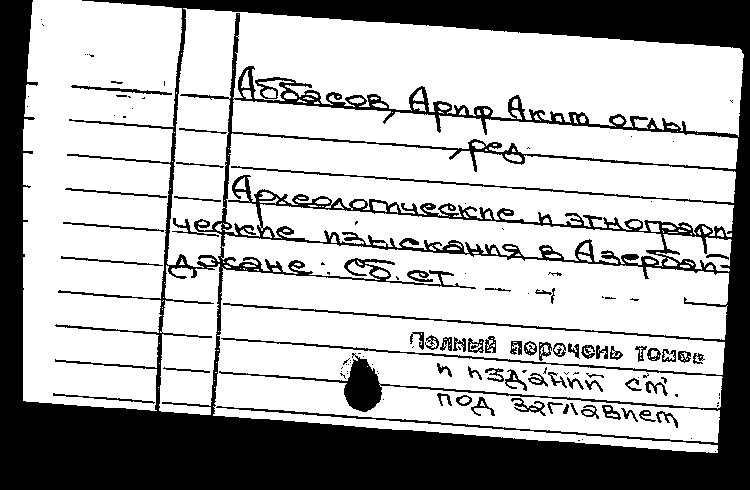 Аббасов, Ариф Акпм оглы
, ред
Археологические и этнографи-
ческие изыскания в Азербай-
джане: Сб. ст.
Полный перечень томов
и изданий см.
под заглавием